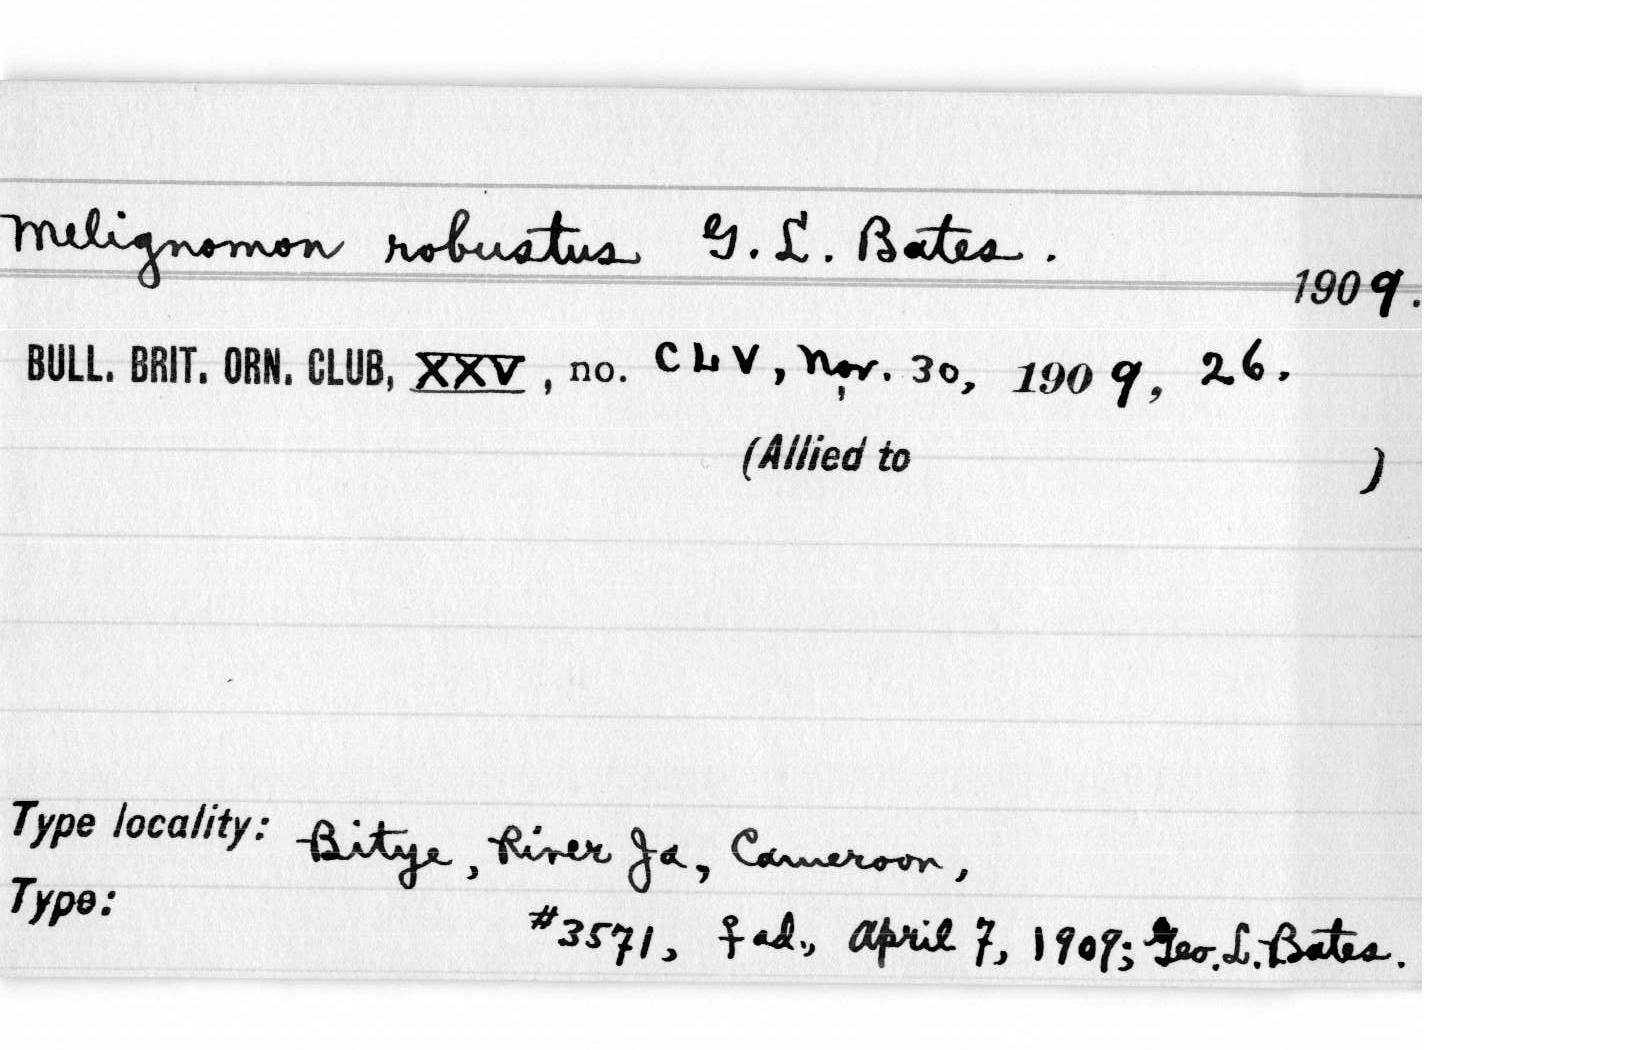 Melignomon robustus G. L. Bates.
1909.
BULL. BRIT. ORN. CLUB, XXV, no. CLV, Nov. 30, 1909, 26.
(Allied to )
Type locality: Bitye, River Ja, Cameroon,
Type: #3571, ♀ ad., April 7, 1909; Geo. L. Bates.